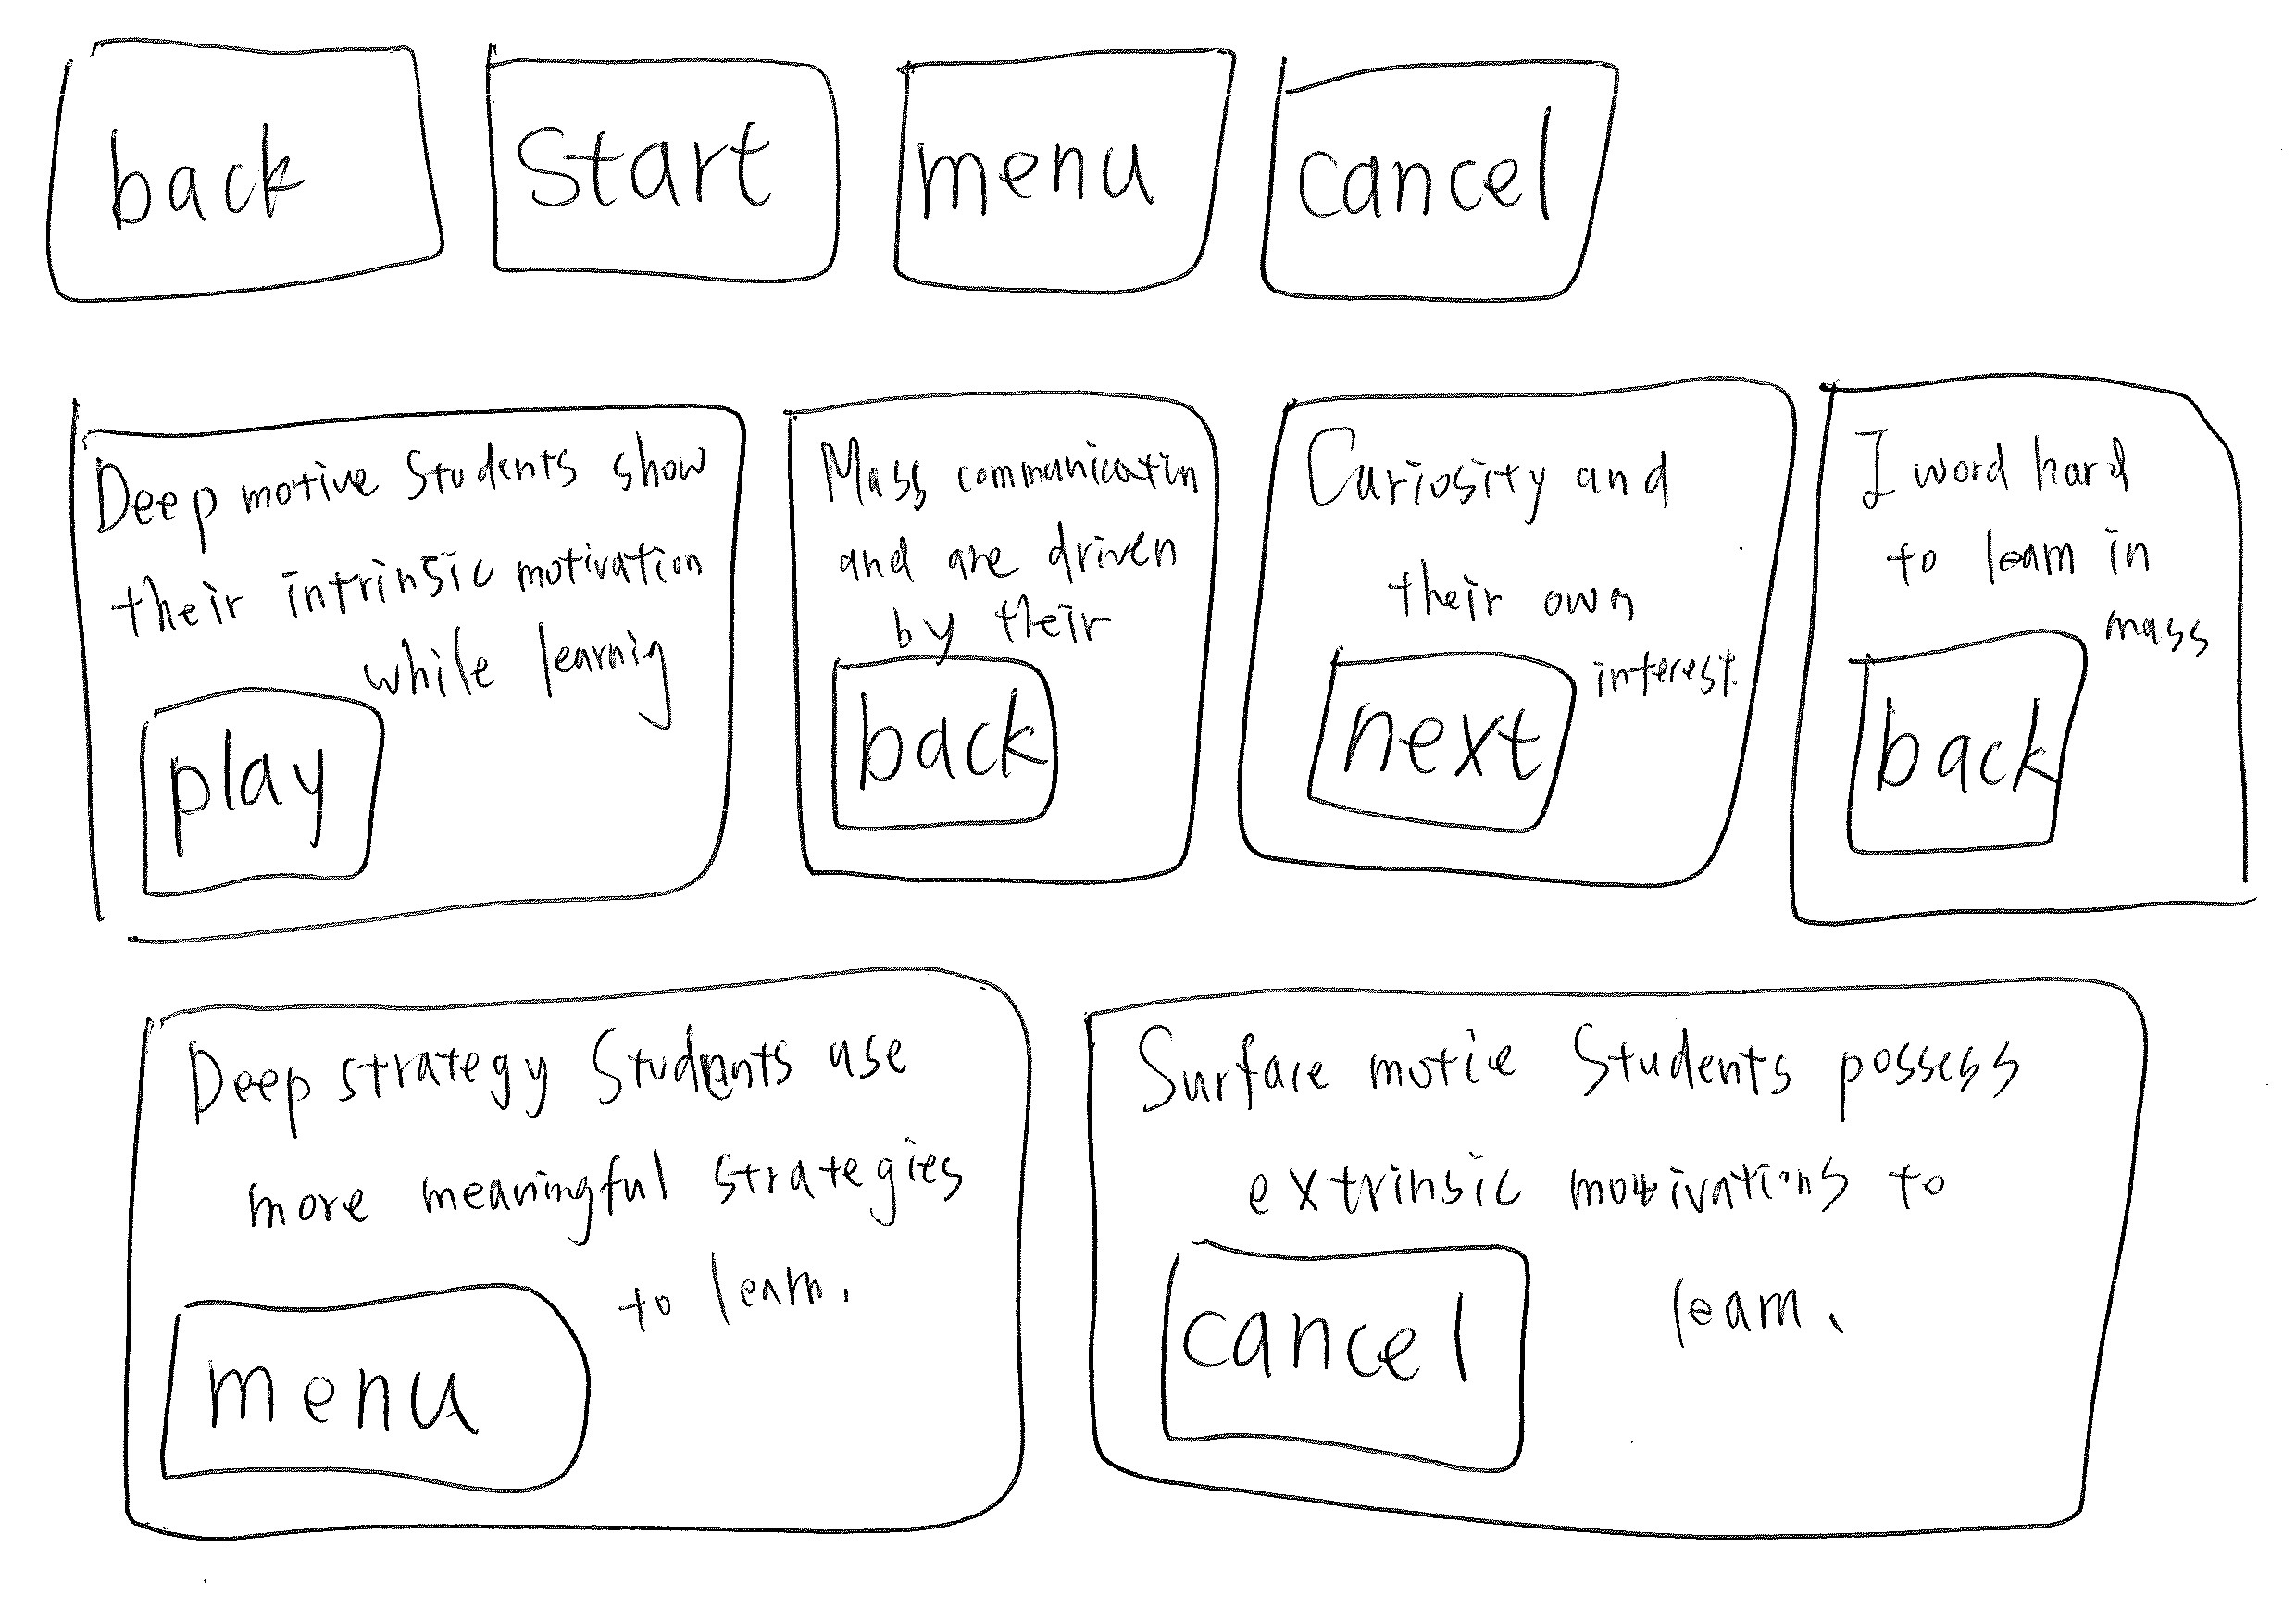 back
Start
menu
cancel
Deep motive Students show
their intrinsic motivation
while learnig
play
Mass communicatin
and are driven
by their
back
Curiosity and
their own
interest.
next
I word hard
to learn in
mass
back
Deep strategy Students use
more meaningful strategies
to learn.
menu
Surface motie Students possess
extrinsic motivations to
learn.
cancel